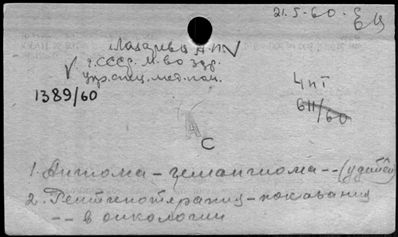 21.5-60. ЕЦ
Лазарева А.П.
г. СССР. М-во здр.
Упр. спец. мед. пом.
1389/60
4 пт
611/60
С
1. Ангиома – гемангиома -- (у детей)
2. Рентгенотерапия – показания
-- в онкологии